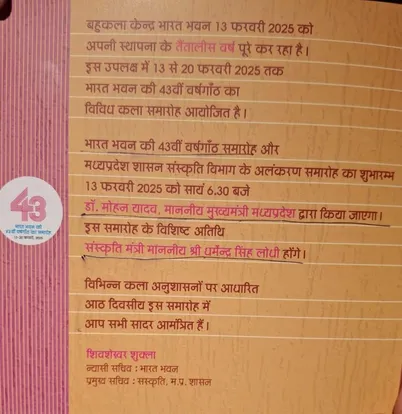 बहुकला केन्द्र भारत भवन 13 फरवरी 2025 को
अपनी स्थापना के तैंतालीस वर्ष पूरे कर रहा है।
इस उपलक्ष में 13 से 20 फरवरी 2025 तक
भारत भवन की 43वीं वर्षगाँठ का
विविध कला समारोह आयोजित है।
भारत भवन की 43वीं वर्षगाँठ समारोह और
मध्यप्रदेश शासन संस्कृति विभाग के अलंकरण समारोह का शुभारम्भ
13 फरवरी 2025 को सायं 6.30 बजे
डॉ. मोहन यादव, माननीय मुख्यमंत्री मध्यप्रदेश द्वारा किया जाएगा।
इस समारोह के विशिष्ट अतिथि
संस्कृति मंत्री माननीय श्री धर्मेन्द्र सिंह लोधी होंगे।
विभिन्न कला अनुशासनों पर आधारित
आठ दिवसीय इस समारोह में
आप सभी सादर आमंत्रित हैं।
शिवशेखर शुक्ला
न्यासी सचिव : भारत भवन
प्रमुख सचिव : संस्कृति, म.प्र. शासन
43
भारत भवन की
43वीं वर्षगाँठ का समारोह